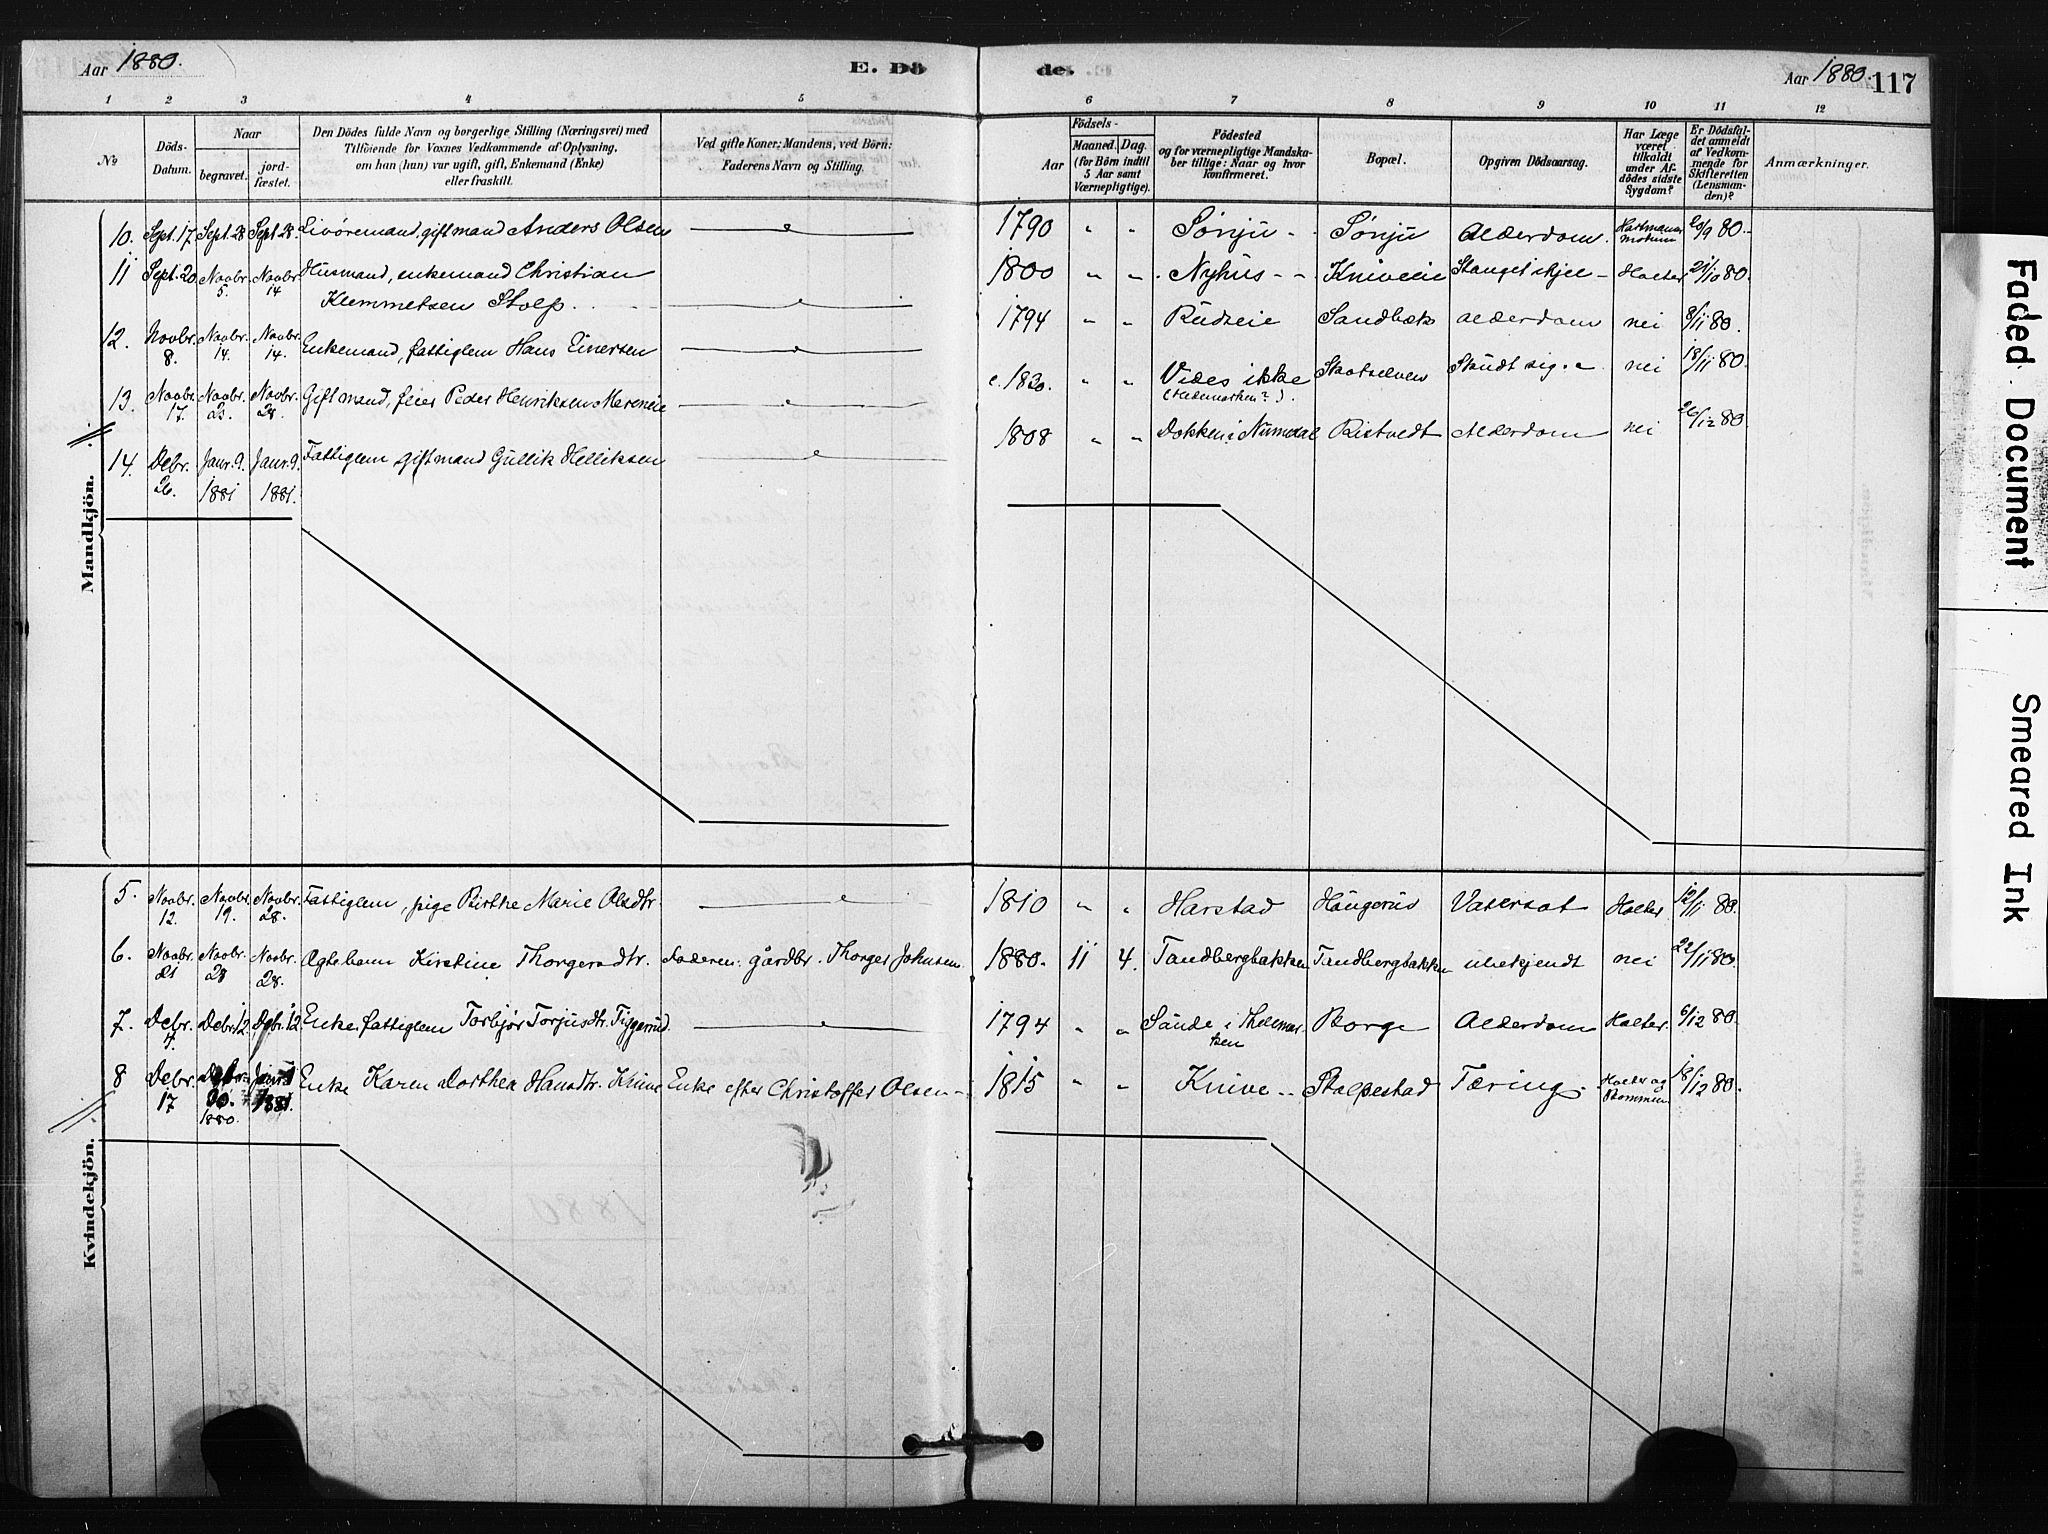 Aar 1880.
E. Dö
de.
Aar 1880.
117
1 2 3 4 5 6 7 8 9 10 11 12
No
Döds-
Datum.
Naar
begravet.
jord-
fæstet.
Den Dödes fulde Navn og borgerlige Stilling (Næringsvei) med
Tilföiende for Voxnes Vedkommende af Oplysning,
om han (hun) var ugift, gift, Enkemand (Enke)
eller fraskilt.
Ved gifte Koner: Mandens, ved Börn:
Faderens Navn og Stilling.
Aar
Födsels-
Maaned. Dag.
(for Börn indtil
5 Aar samt
Værnepligtige).
Födested
og for værnepligtige Mandska-
ber tillige: Naar og hvor
konfirmeret.
Bopæl.
Opgiven Dödsaarsag.
Har Læge
været
tilkaldt
under Af-
dödes sidste
Sygdom?
Er Dödsfal-
det anmeldt
af Vedkom-
mende for
Skifteretten
(Lensman-
den)?
Anmærkninger.
Mandkjön.
10. Sept. 17 Sept. 28 Sept 28. Livøremand, gift mand Anders Olsen 1790 " " Sønju - Sønju Alderdom. 20/9 80.
11 Sept. 20 Novbr. 5. Novbr. 14 Husmand, enkemand Christian
Klemmetsen Stolp. 1800 " " Nyhus - - Kniveeie Holter 21/10 80.
12. Novbr. 8. Novbr. 14. Novbr. 14. Enkemand, fattiglem Hans Einersen 1794 " " Rudseie Sandbæk Alderdom nei 8/11 80.
13. Novbr. 17. Novbr. 23. Novbr. 28. Gift mand, feier Peder Henriksen Mereneie c. 1820. " " Vides ikke
(Hedemarken?). Skudt sig. nei 18/11 80.
14. Debr. 26. Janr. 9. 1881 Janr. 9. 1881. Fattiglem, gift mand Gullik Helliksen 1808 " " Dokken i Numedal Ristvedt Alderdom nei 26/12 80
Kvindekjön.
5. Novbr. 12. Novbr. 19. Novbr. 28. Fattiglem, pige Birthe Marie Olsdtr. 1810 " " Harstad Haugerud Vatersot Holter 12/11 80.
6. Novbr. 21 Novbr. 28 Novbr. 28. Ægtebarn Kirstine Thorgersdtr. Faderen: gårdbr. Thorger Johnsen 1880. 11 4. Tandbergbakken Tandbergbakken ubekjendt nei 22/11 80.
7. Debr. 4. Debr. 12. Debr. 12. Enke, fattiglem Torbjør Torjusdtr. Tiggerud. 1794 " " Saude i Thelemar-
ken Borge Alderdom Holter. 6/12 80.
8 Debr. 17 Debr. 30. 1880. Janr. 1881. Enke Karen Dorthea Hansdtr. Knive Enke efter Christoffer Olsen - 1815 " " Knive - - Stolpestad Tæring - Holter og
Bommen 18/12 80.
Faded Document
Smeared Ink